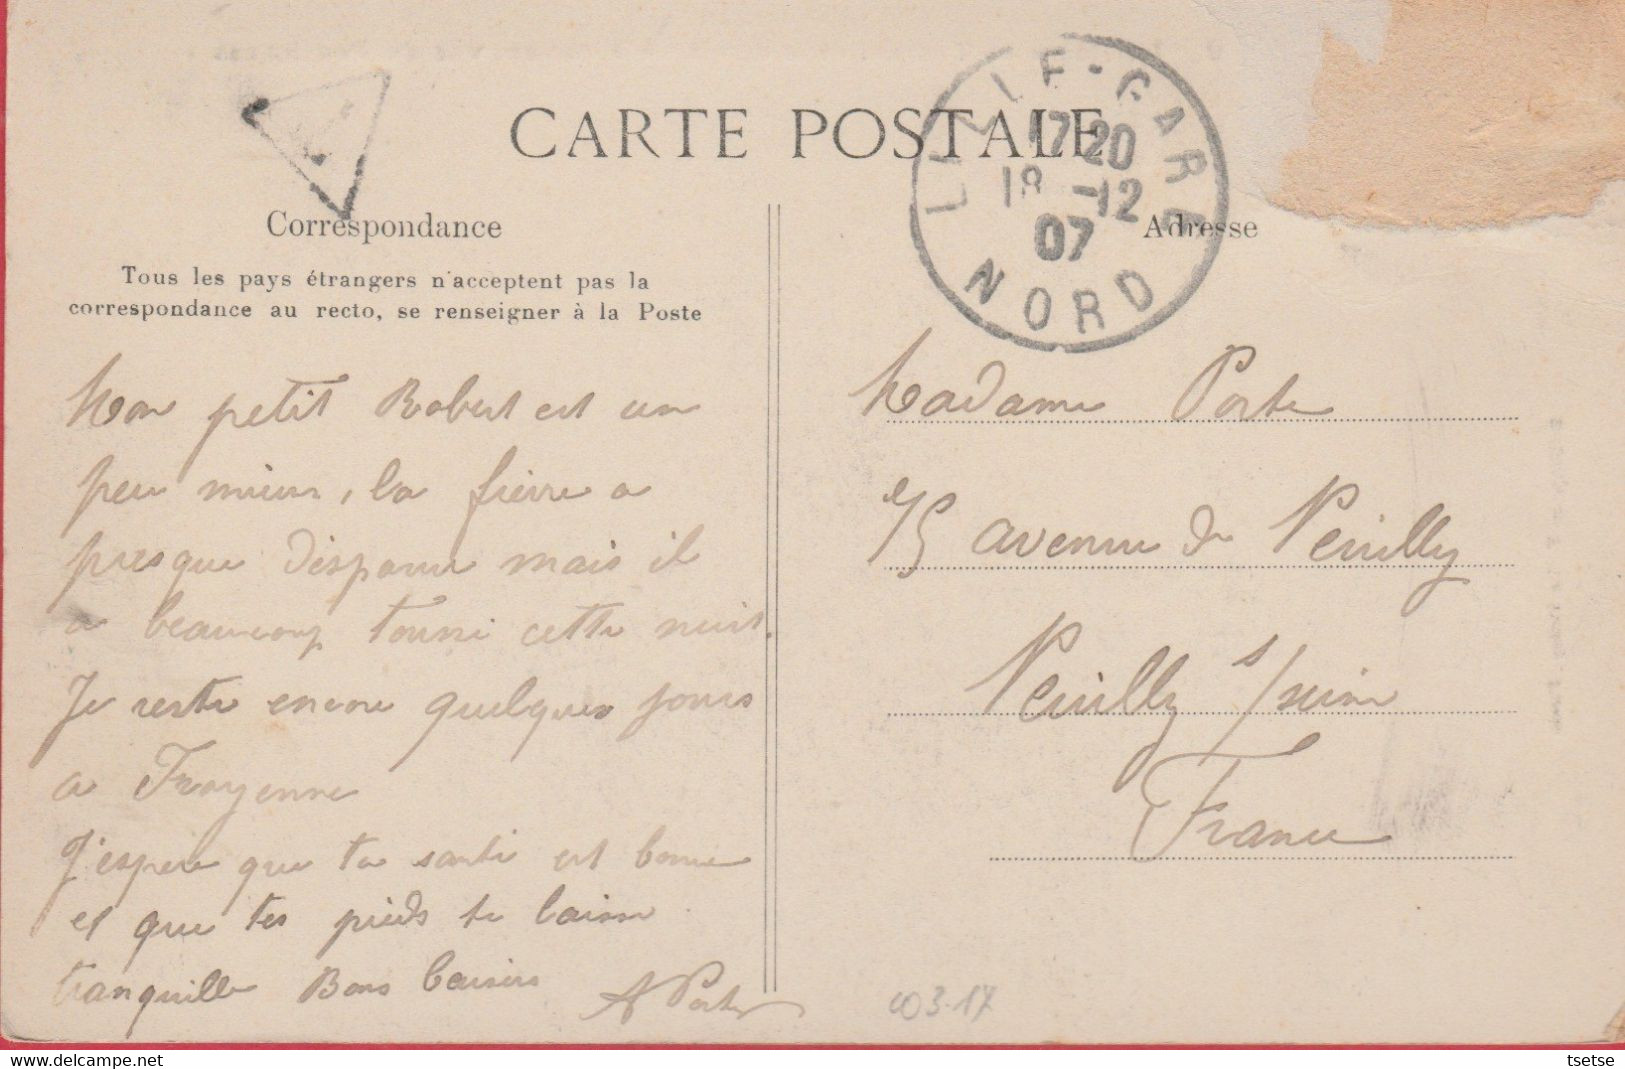 CARTE POSTALE
LILLE-GARE
17 20
18 -12
07
NORD
Correspondance
Adresse
Tous les pays étrangers n'acceptent pas la
correspondance au recto, se renseigner à la Poste
Mon petit Robert est un
peu mieux, la fièvre a
presque disparue mais il
a beaucoup toussé cette nuit.
Je reste encore quelques jours
a Froyenne
J'espère que ta santé est bonne
et que tes pieds te laisse
tranquille Bons baisers
A Porte
Madame Porte
75 avenue de Neuilly
Neuilly s/seine
France
003-17
tsetse